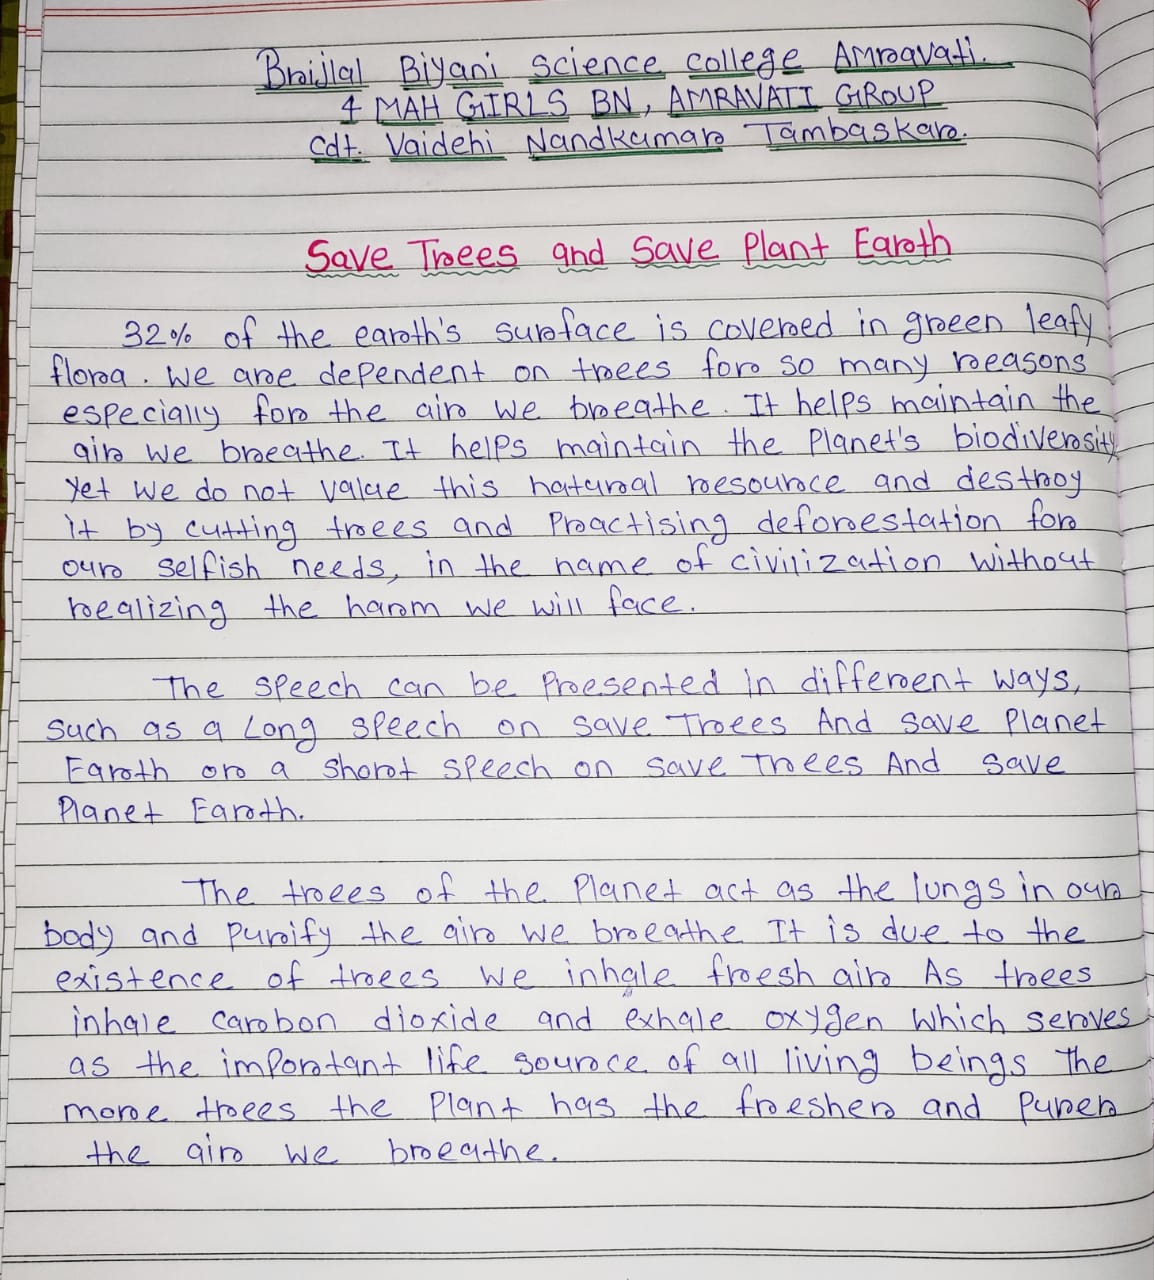 Brijlal Biyani science college Amravati.
4 MAH GIRLS BN, AMRAVATI GROUP
Cdt. Vaidehi Nandkumar Tambaskar.
Save Trees and Save Plant Earth
32% of the earth's surface is covered in green leafy
flora. We are dependent on trees for so many reasons
especially for the air we breathe. It helps maintain the
air we breathe. It helps maintain the Planet's biodiversity
Yet we do not value this natural resource and destroy
it by cutting trees and Practising deforestation for
our selfish needs, in the name of civilization without
realizing the harm we will face.
The speech can be Presented in different ways,
Such as a Long speech on save Trees And save Planet
Earth or a short speech on save Trees And save
Planet Earth.
The trees of the Planet act as the lungs in our
body and Purify the air we breathe It is due to the
existence of trees we inhale fresh air As trees
inhale carbon dioxide and exhale oxygen which serves
as the important life source of all living beings The
more trees the Plant has the fresher and Purer
the air we breathe.